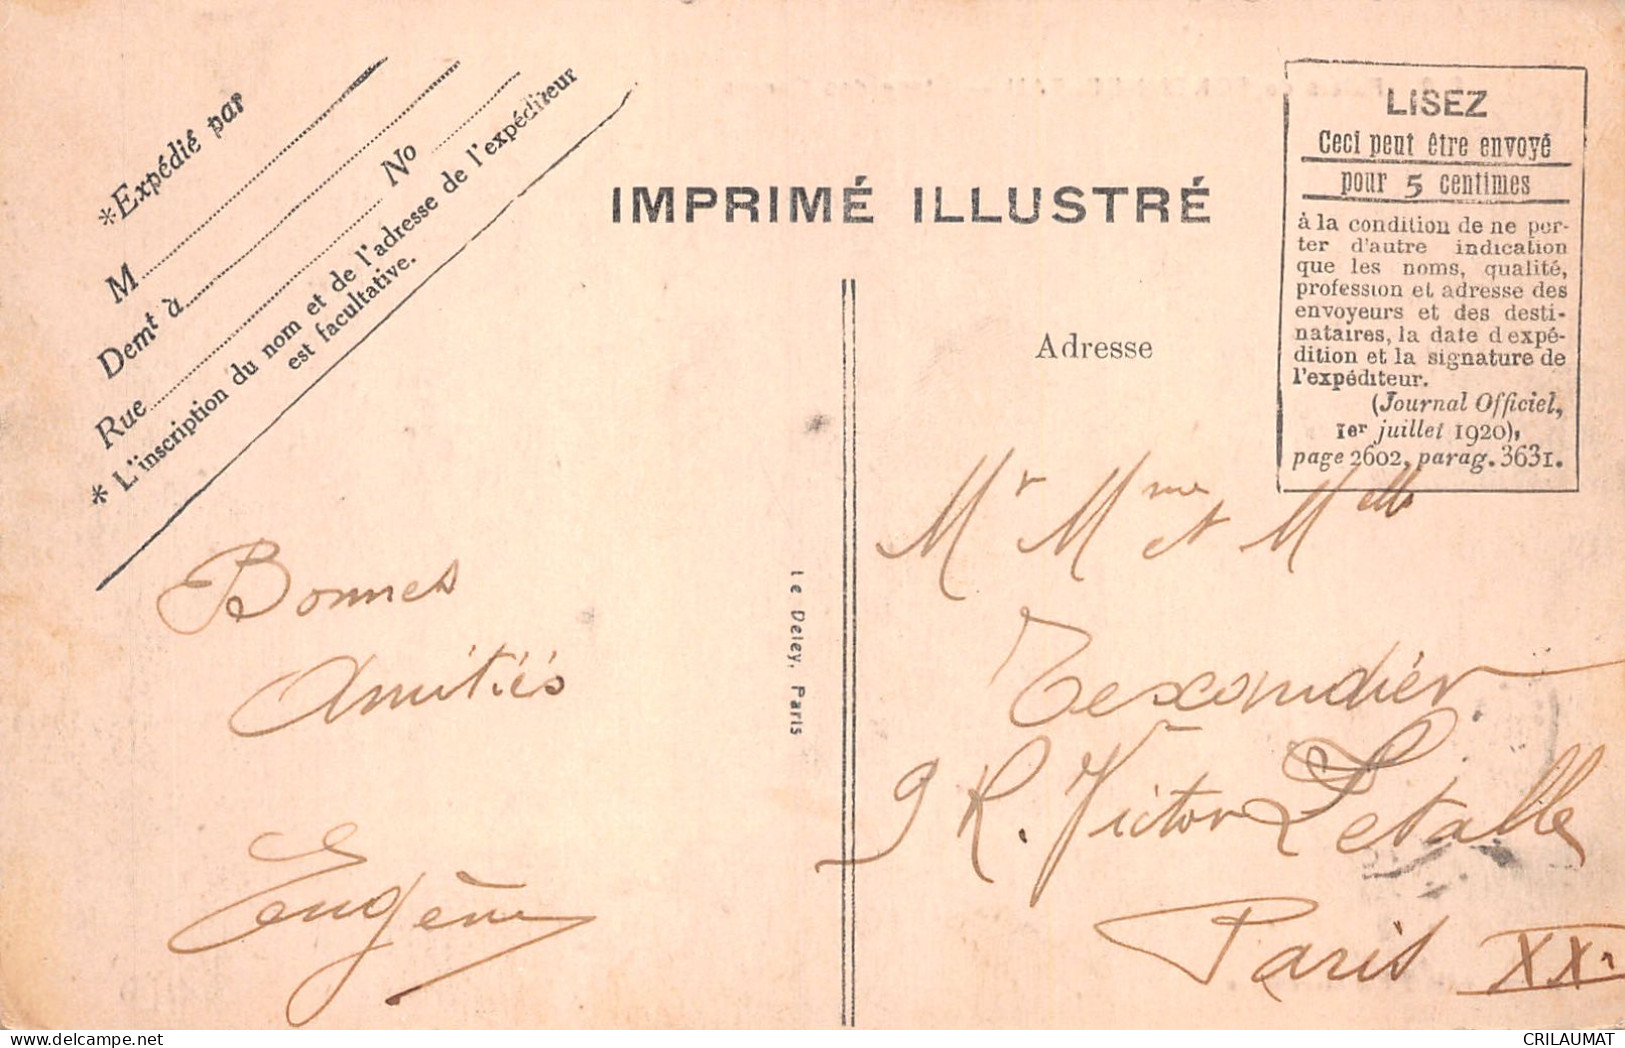 *Expédié par
M
Demt à
Rue No
* L'inscription du nom et de l'adresse de l'expéditeur
est facultative.
IMPRIMÉ ILLUSTRÉ
LISEZ
Ceci peut être envoyé
pour 5 centimes
à la condition de ne por-
ter d'autre indication
que les noms, qualité,
profession et adresse des
envoyeurs et des desti-
nataires, la date d'expé-
dition et la signature de
l'expéditeur.
(Journal Officiel,
1er juillet 1920),
page 2602, parag. 3631.
Adresse
Bonnes
Amitiés
Eugène
Le Deley, Paris
Mr Mme et Melle
Texandier
9 R. Victor Letalle
Paris XXe
CRILAUMAT